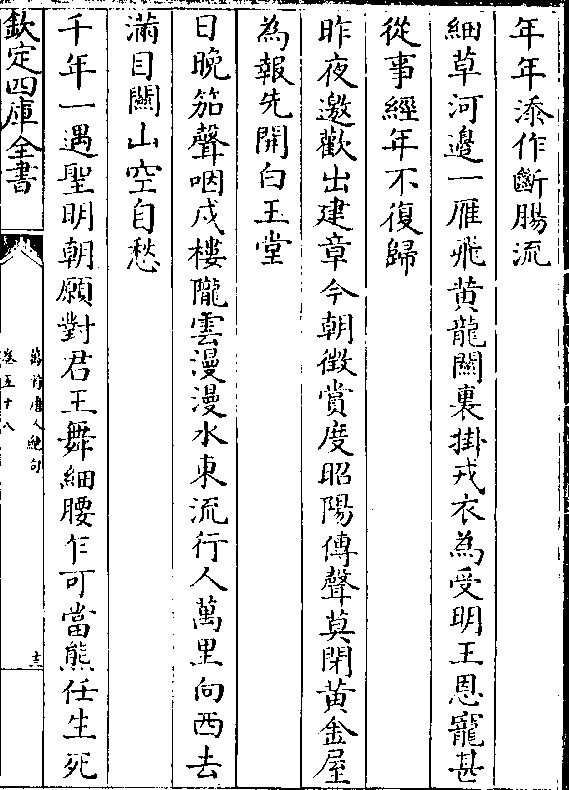 年年添作斷腸流
細草河邊一雁飛黄龍關裏掛戎衣為受明王恩寵甚
從事經年不復歸
昨夜邀歡出建章今朝徴賞度昭陽傳聲莫閉黄金屋
為報先開白玉堂
日晚笳聲咽戍樓隴雲漫漫水東流行人萬里向西去
滿目關山空自愁
千年一遇聖明朝願對君王舞細腰乍可當熊任生死
欽定四庫全書
萬首唐人絶句
卷五十八